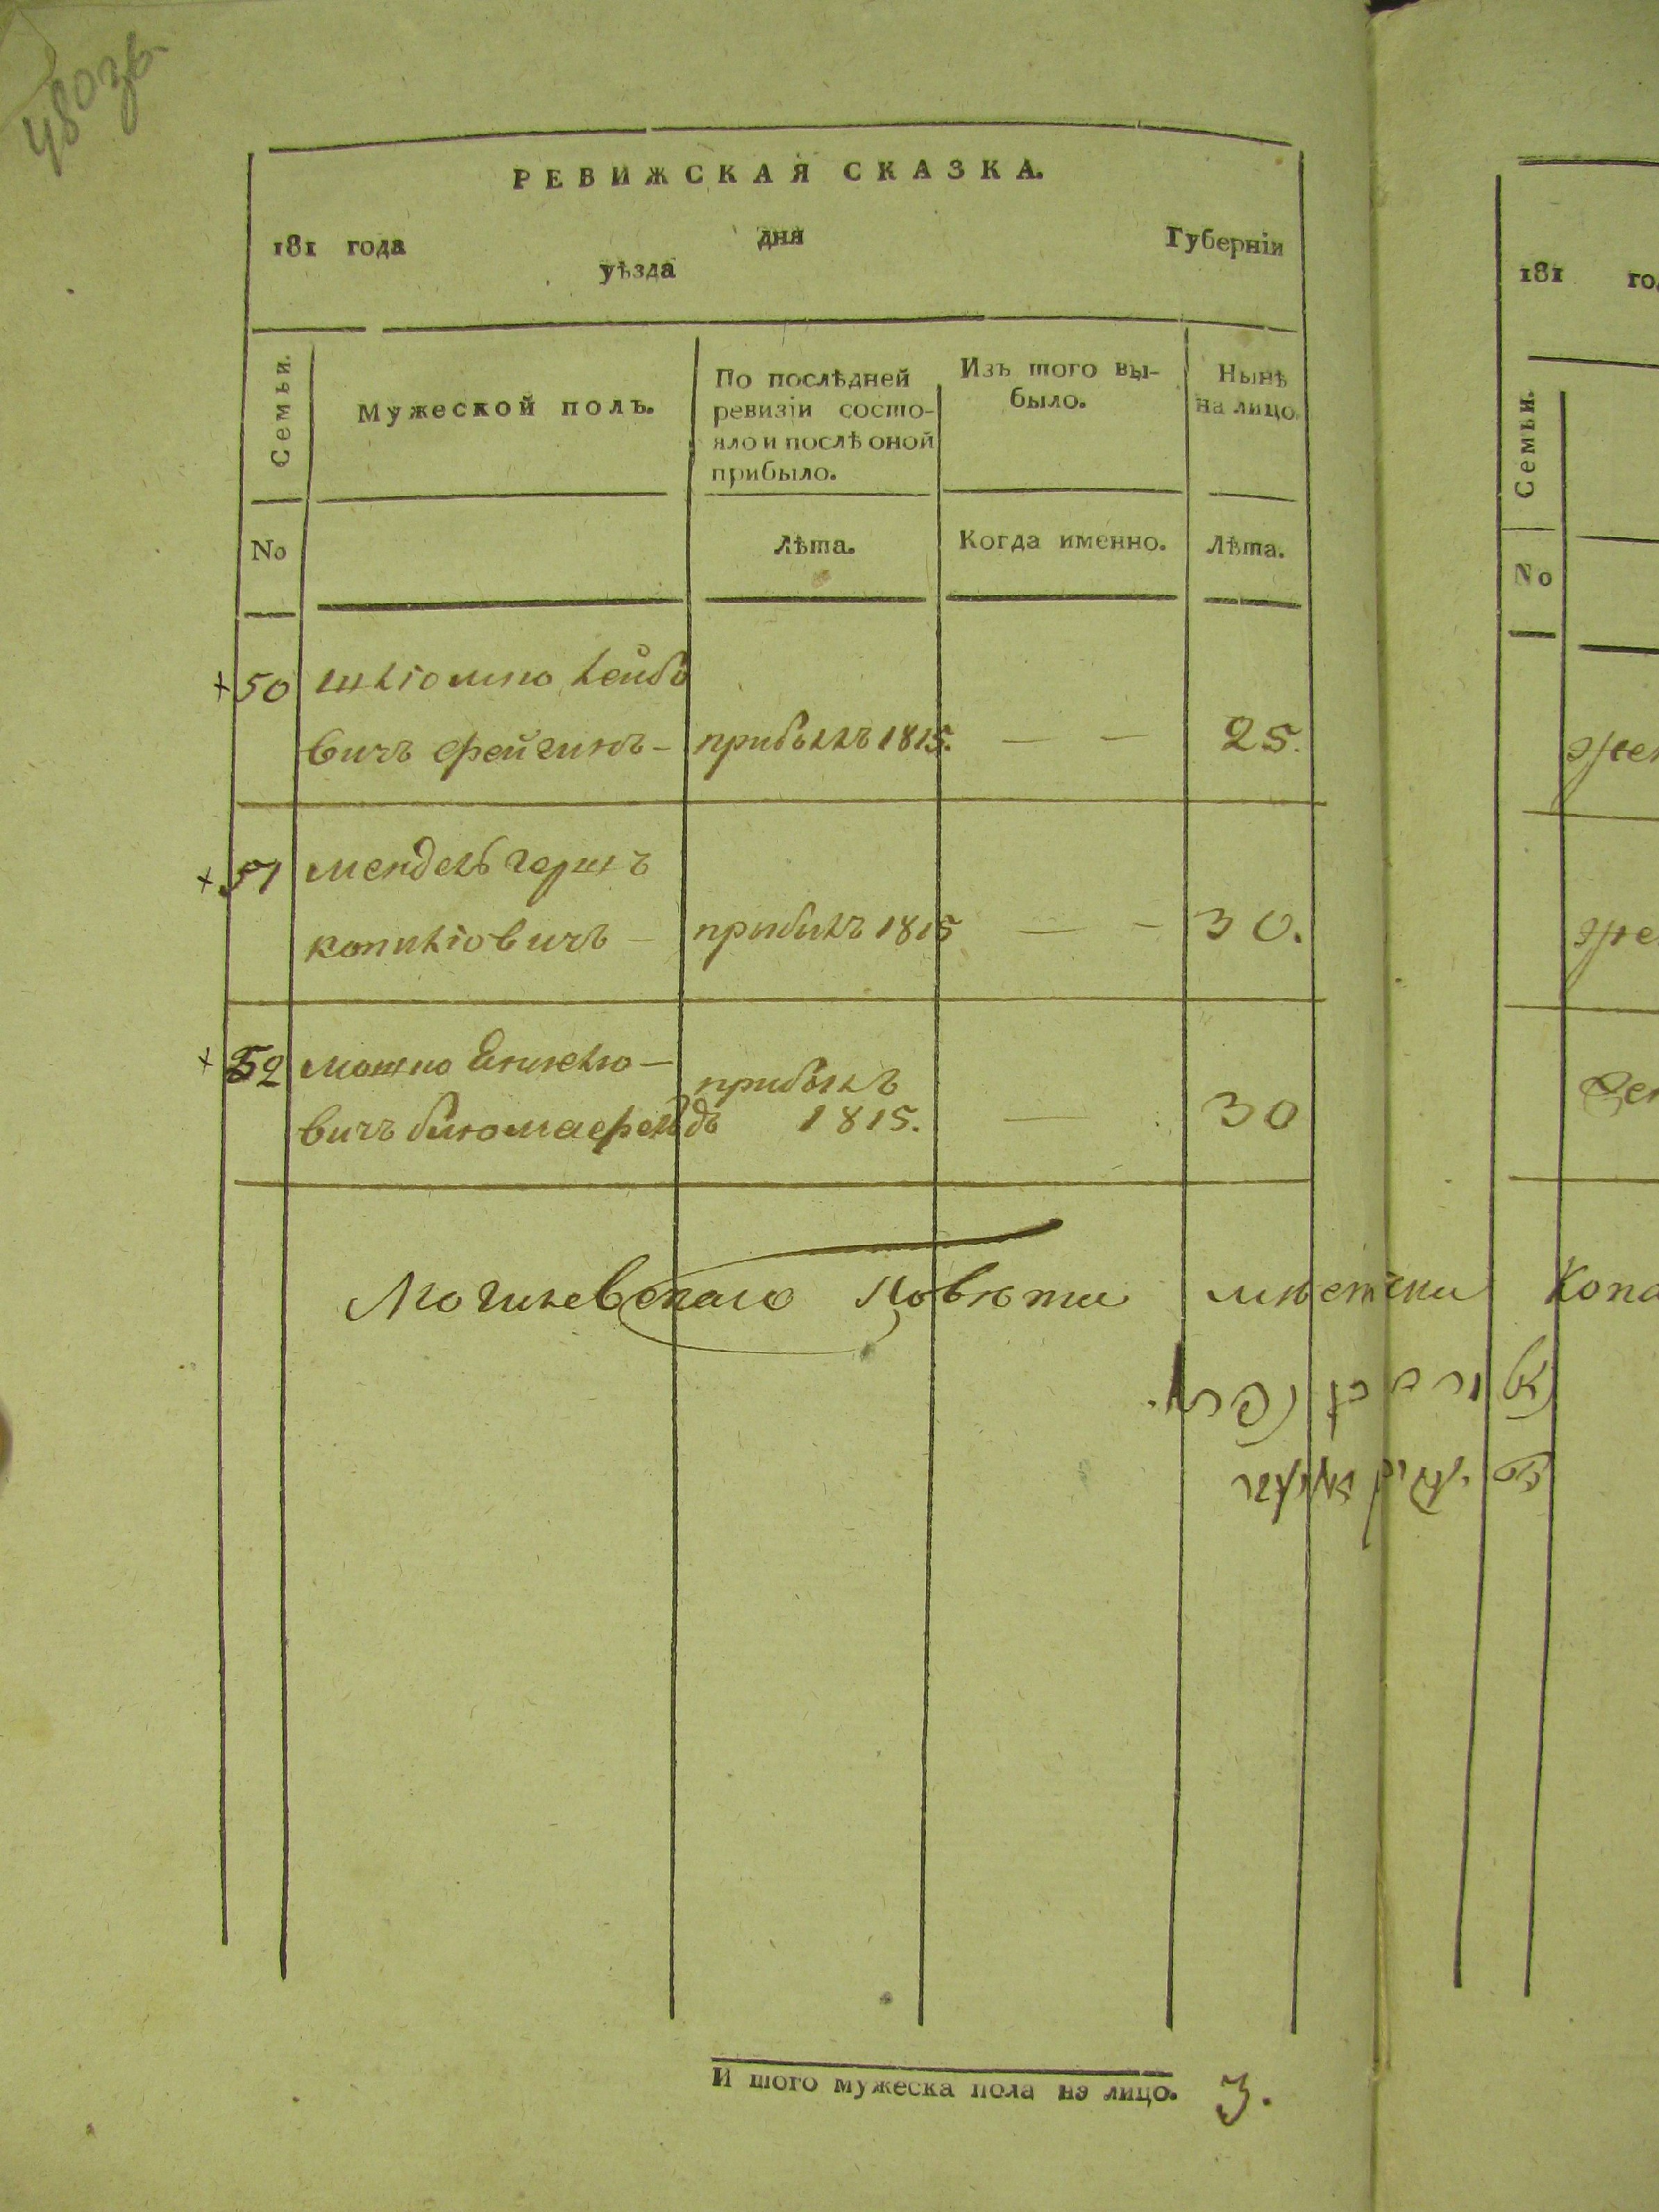 480 зв.
РЕВИЖСКАЯ СКАЗКА.
181 года дня Губернїи
уѣзда
Семьи.
Мужеской полъ.
По послѣдней
ревизїи состо-
яло и послѣ оной
прибыло.
Изъ того вы-
было.
Нынѣ
на лицо.
No
Лѣта.
Когда именно.
Лѣта.
+ 50 Шліомно Лейбо
вичъ Фейгинъ - прибылъ 1815. — — 25.
+ 51 Мендель Герш ъ
копиліовичъ — прибылъ 1815 — - 30.
+ 52 Мошно —
вичъ блюмафельдъ прибылъ 1815. — 30
Могилевскаго Повѣта мѣстечка Копа
И того мужеска пола на лицо. 3.
181 го
Семьи.
No
жен
жен